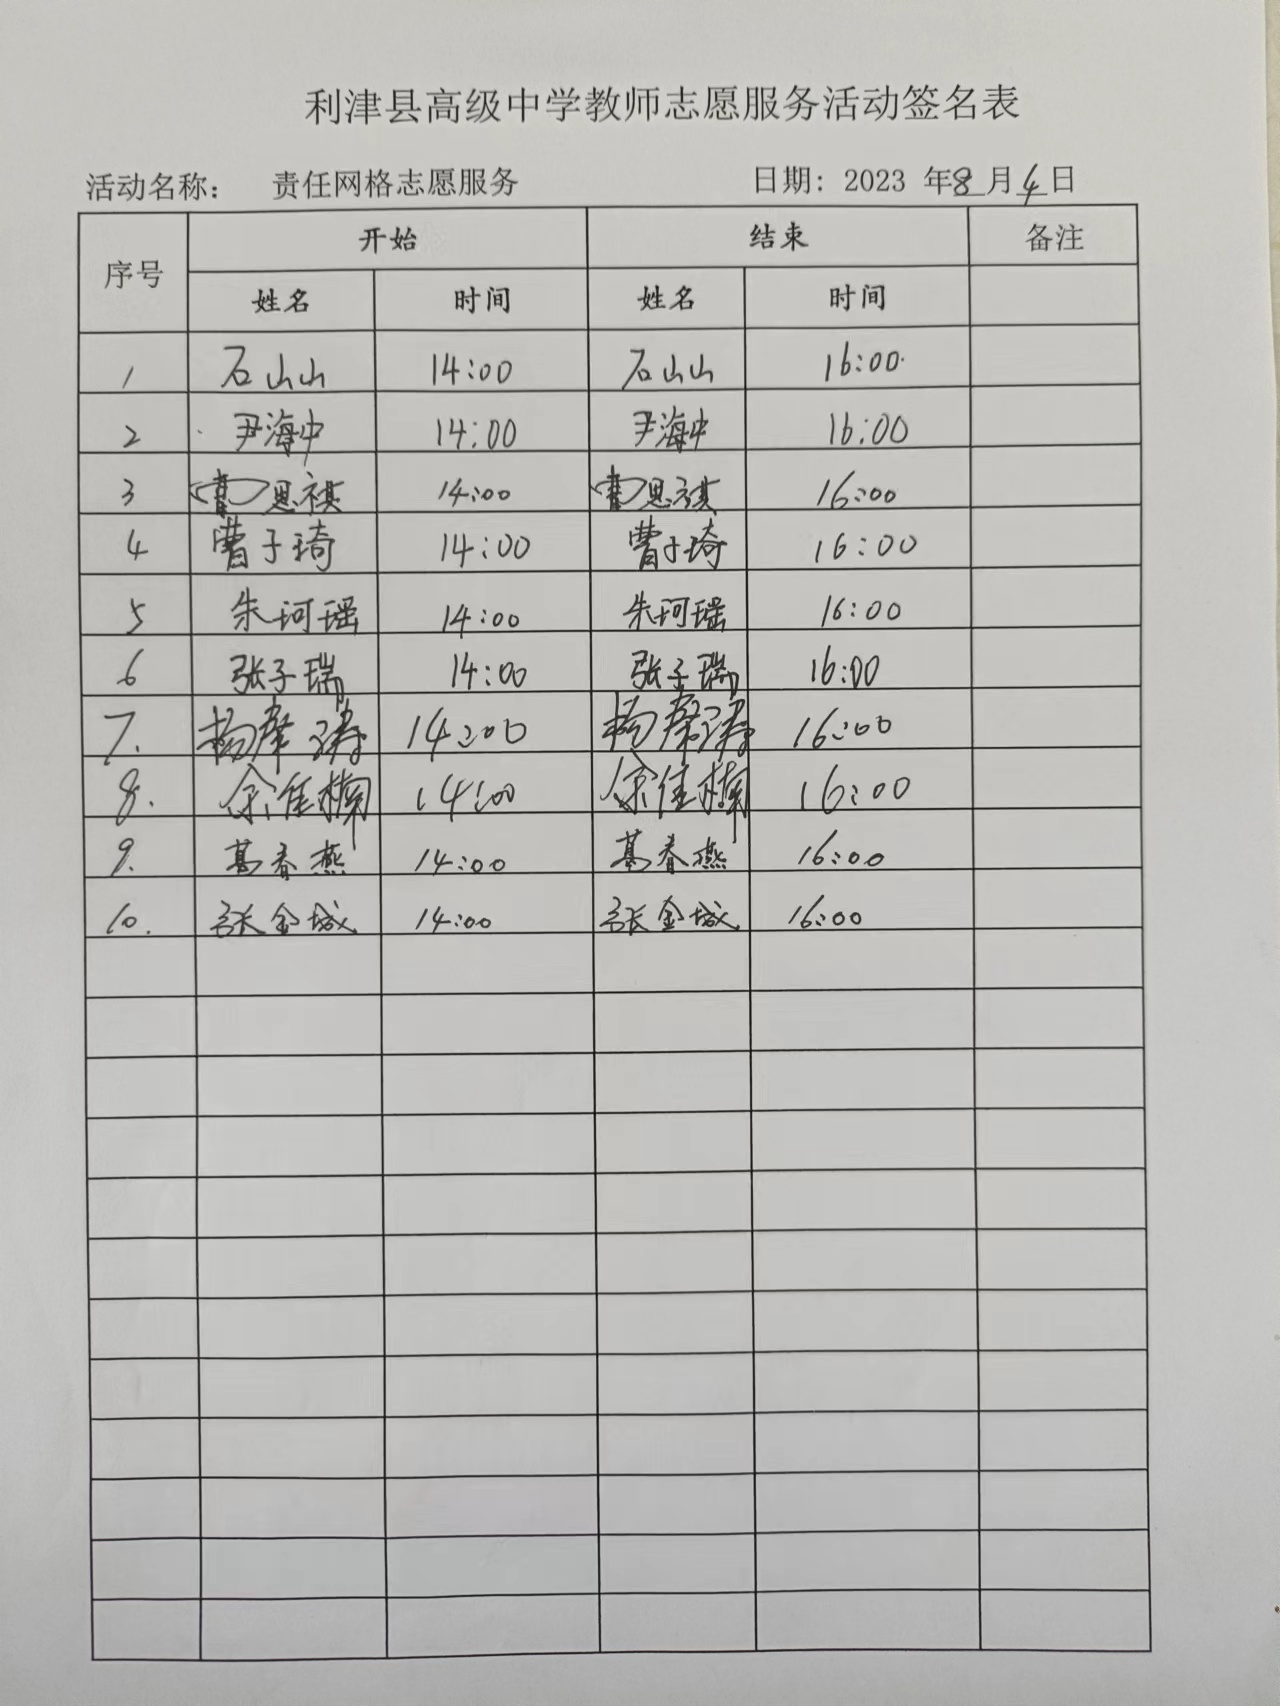 利津县高级中学教师志愿服务活动签名表
活动名称： 责任网格志愿服务 日期: 2023 年8月4日
序号 开始 结束 备注
姓名 时间 姓名 时间
1 石山山 14:00 石山山 16:00
2 尹海中 14:00 尹海中 16:00
3 曹思祺 14:00 曹思祺 16:00
4 曹子琦 14:00 曹子琦 16:00
5 朱珂瑶 14:00 朱珂瑶 16:00
6 张子瑞 14:00 张子瑞 16:00
7. 杨 14:00 杨 16:00
8. 徐佳楠 14:00 徐佳楠 16:00
9. 葛春燕 14:00 葛春燕 16:00
10. 张金城 14:00 张金城 16:00